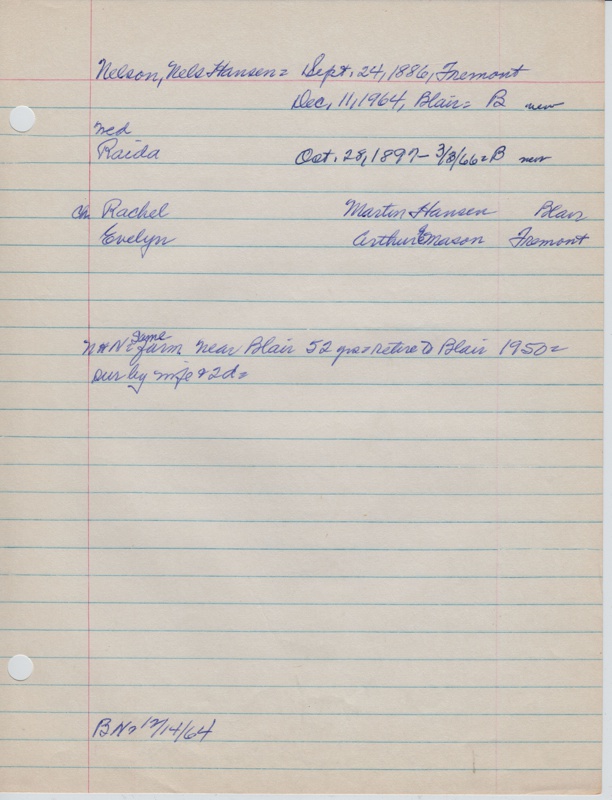 Nelson, Nels Hansen = Sept. 24, 1886, Fremont
Dec, 11, 1964, Blair = B new
wed
Raida Oct. 28, 1897 - 3/8/66 = B new
Ch Rachel Martin Hansen Blair
Evelyn Arthur Emason Fremont
same
NHN = farm near Blair 52 yrs = retire to Blair 1950 =
sur by wife & 2d =
BN = 12/14/64